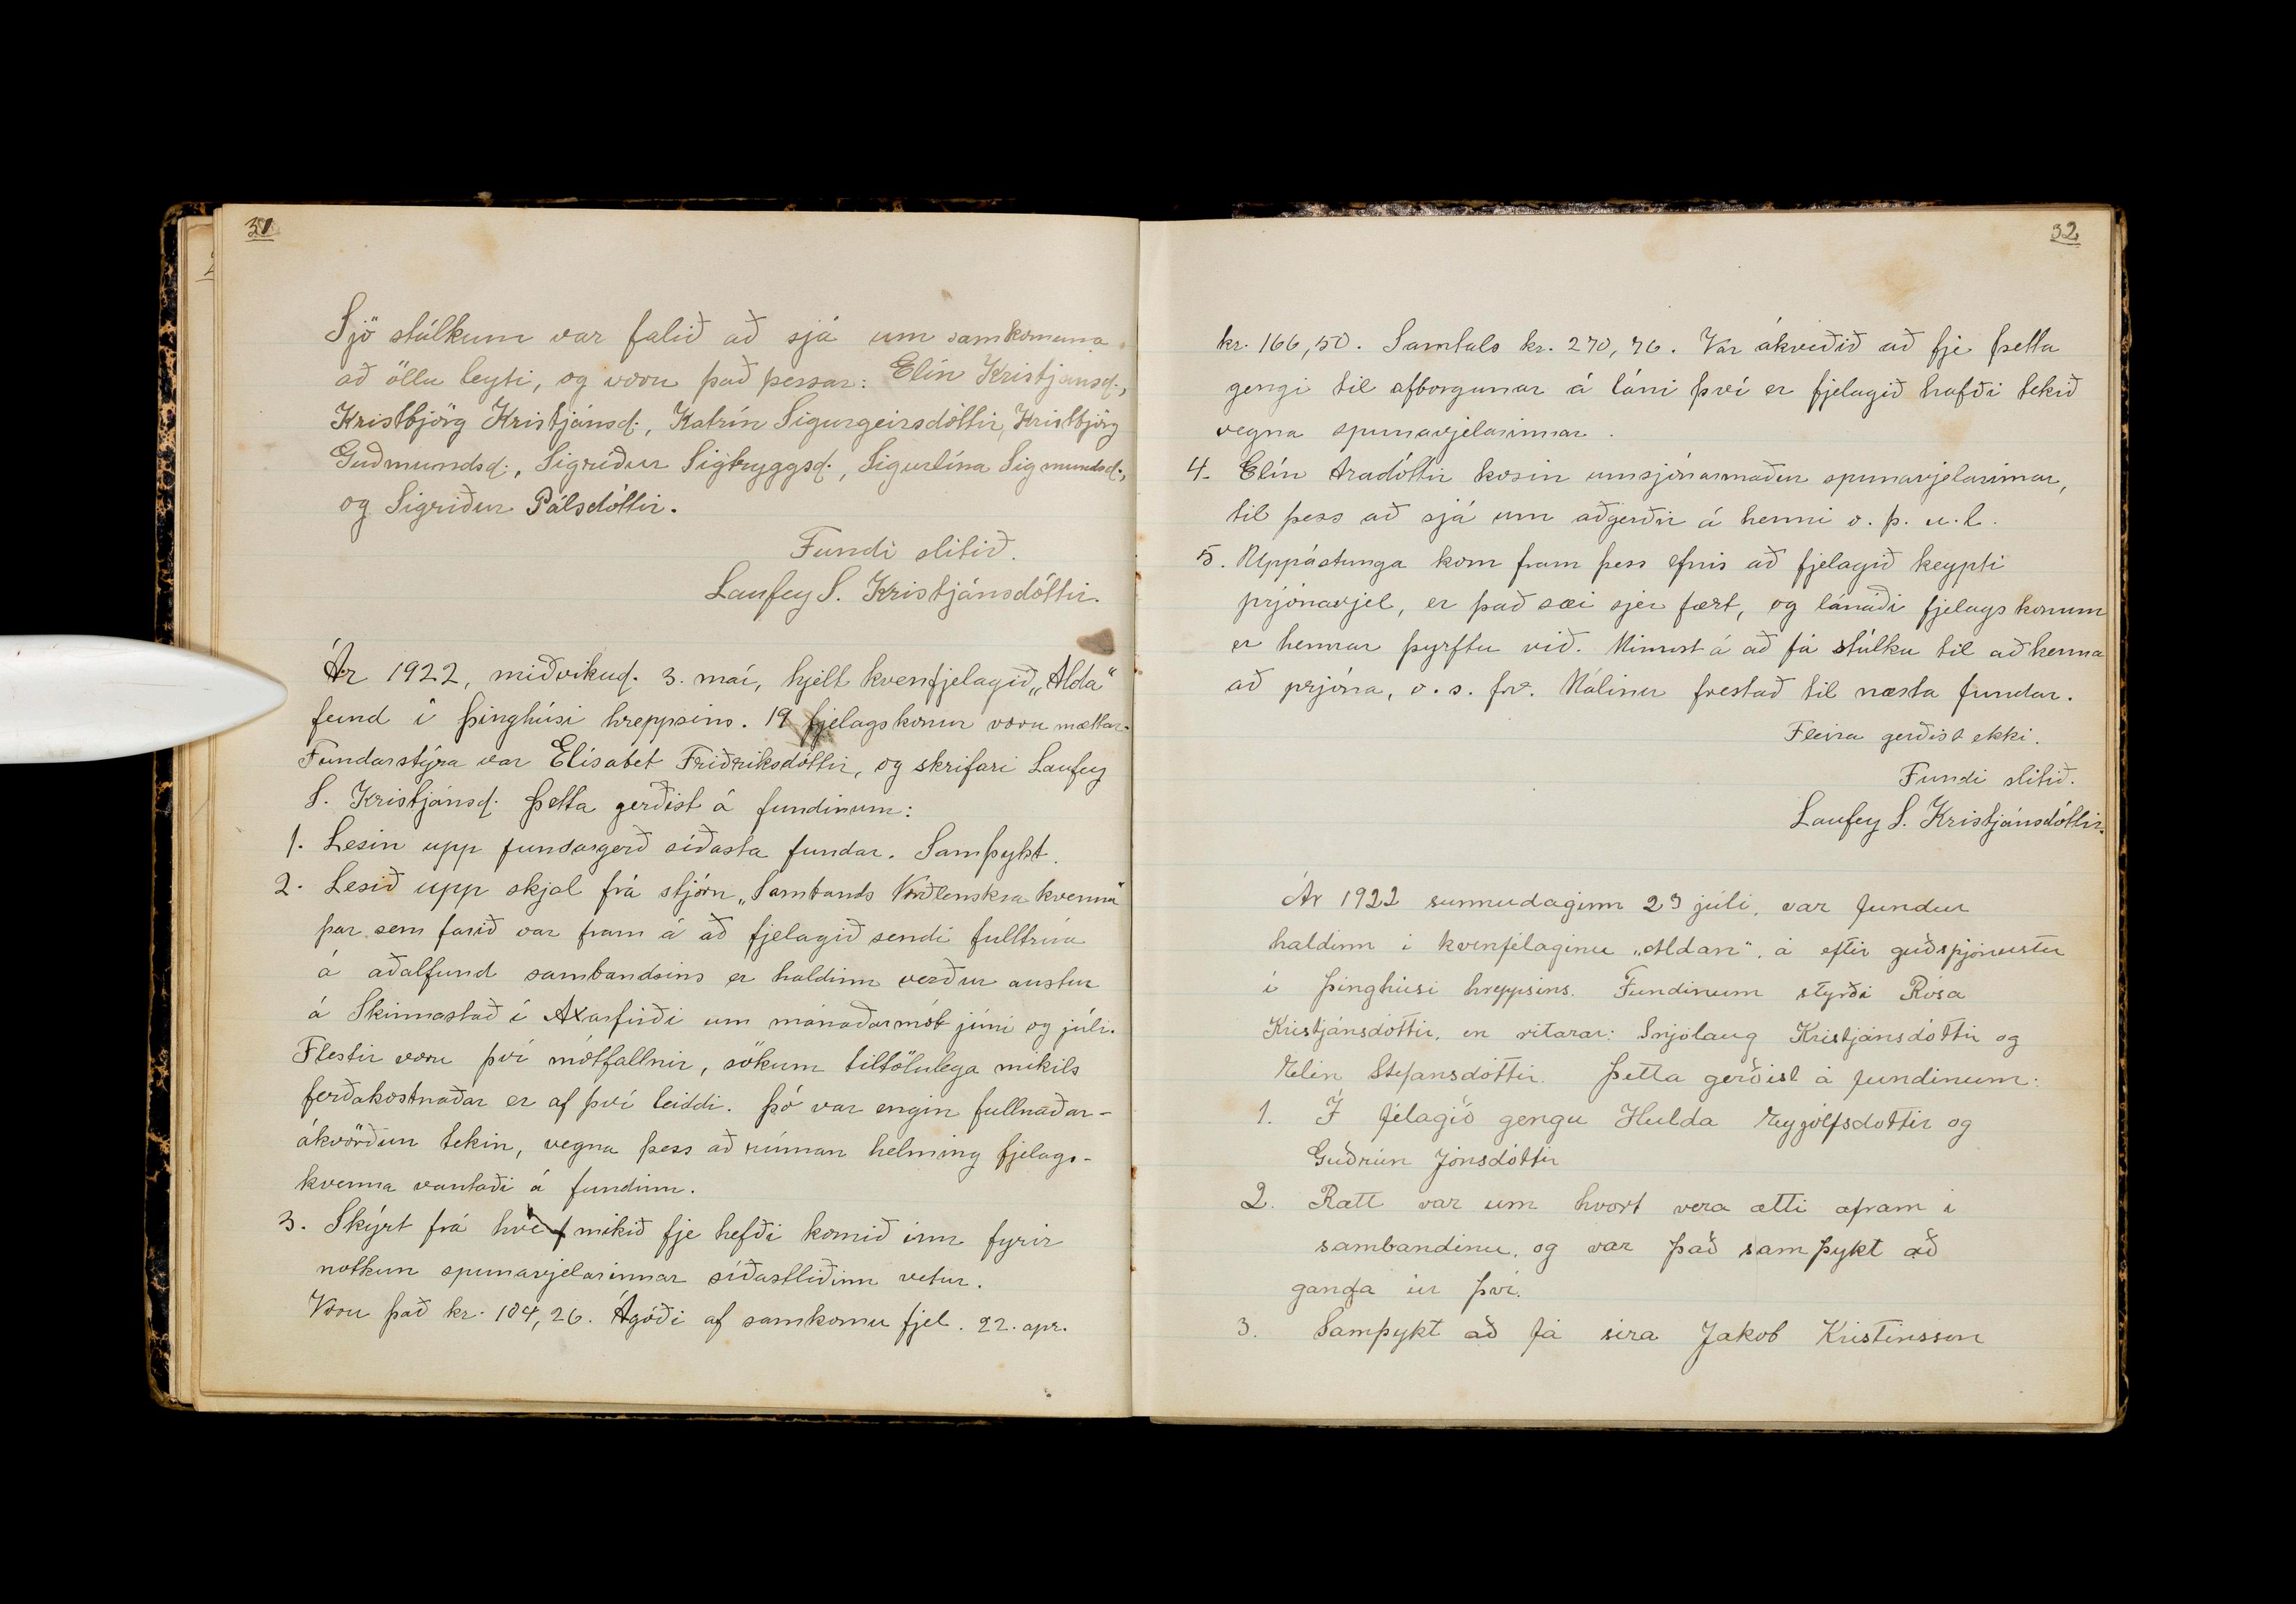 31
Sjö stúlkum var falið að sjá um samkomuna
að öllu leyti, og voru það þessar: Elín Kristjánsd.,
Kristbjörg Kristjánsd., Katrín Sigurgeirsdóttir, Kristbjörg
Guðmundsd., Sigríður Sigtryggsd., Sigurlína Sigmundsd.,
og Sigríður Pálsdóttir.
Fundi slitið.
Laufey S. Kristjánsdóttir.
Ár 1922, miðvikud. 3. maí, hjelt kvenfjelagið „Alda“
fund í þinghúsi hreppsins. 19 fjelagskonur voru mættar.
Fundarstýra var Elísabet Friðriksdóttir, og skrifari Laufey
S. Kristjánsd. Þetta gerðist á fundinum:
1. Lesin upp fundargerð síðasta fundar. Samþykt.
2. Lesið upp skjal frá stjórn „Sambands Norðlenskra kvenna“
þar sem farið var fram á að fjelagið sendi fulltrúa
á aðalfund sambandsins er haldinn verður austur
á Skinnastað í Axarfirði um mánaðarmót júní og júlí.
Flestir voru því mótfallnir, sökum tiltölulega mikils
ferðakostnaðar er af því leiddi. Þó var engin fullnaðar-
ákvörðun tekin, vegna þess að rúman helming fjelags-
kvenna vantaði á fundinn.
3. Skýrt frá hve mikið fje hefði komið inn fyrir
notkun spunavjelarinnar síðastliðinn vetur.
Voru það kr. 104,26. Ágóði af samkomu fjel. 22. apr.
32
kr. 166,50. Samtals kr. 270,76. Var ákveðið að fje þetta
gengi til afborgunar á láni því er fjelagið hafði tekið
vegna spunavjelarinnar.
4. Elín Aradóttir kosin umsjónarmaður spunavjelarinnar,
til þess að sjá um aðgerðir á henni o. þ. u. l.
5. Uppástunga kom fram þess efnis að fjelagið keypti
prjónavjel, er það sæi sjer fært, og lánaði fjelagskonum
er hennar þyrftu við. Minnst á að fá stúlku til að kenna
að prjóna, o. s. frv. Málinu frestað til næsta fundar.
Fleira gerðist ekki.
Fundi slitið.
Laufey S. Kristjánsdóttir.
Ár 1922 sunnudaginn 23 júli, var fundur
haldinn i kvenfélaginu „Aldan“. á eftir guðsþjónustu
i þinghúsi hreppsins. Fundinum styrði Rósa
Kristjánsdóttir. en ritarar: Snjólaug Kristjánsdóttir og
Elin Stefansdóttir. Þetta gerðist á fundinum:
1. Í félagið gengu Hulda Eyjólfsdottir og
Guðrún Jónsdóttir
2. Rætt var um hvort vera ætti afram i
sambandinu. og var það samþykt að
ganga úr því.
3. Samþykt að fá sira Jakob Kristinsson